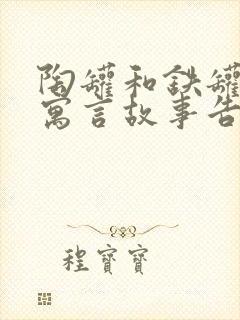 陶罐和铁罐
寓言故事告
程宝宝